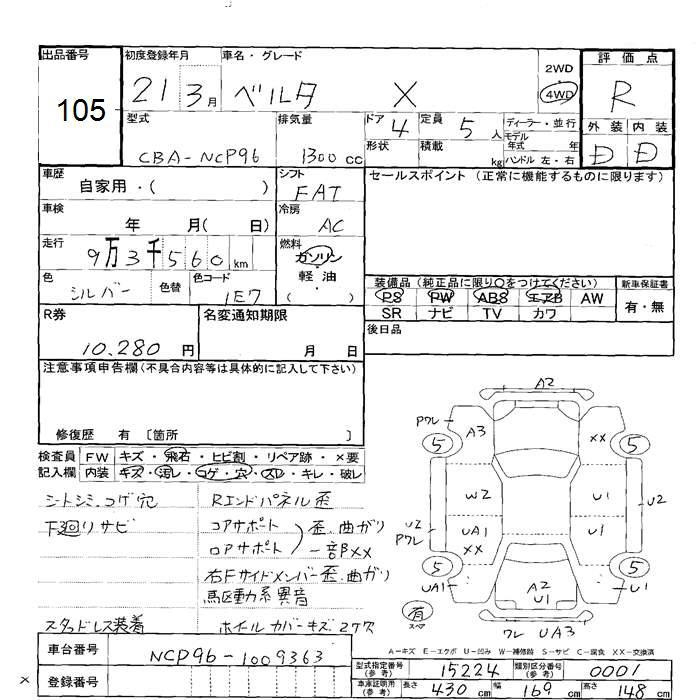 出品番号
105
初度登録年月
21 3月
車名・グレード
ベルタ X
2WD
4WD
評価点
R
型式
CBA-NCP96
排気量
1300 cc
ドア 4
定員 5人
形状
積載 kg
ディーラー・並行
モデル
年式 年
ハンドル 左・右
外装 内装
D D
車歴
自家用・( )
シフト
FAT
セールスポイント (正常に機能するものに限ります)
車検
年 月( 日)
冷房
AC
走行
9万3千560km
燃料
ガソリン
・
軽油
・
( )
色
シルバー
色替
色コード
1E7
装備品 (純正品に限り○をつけてください)
PS PW ABS エアB AW
SR ナビ TV カワ
新車保証書
有・無
R券
10.280 円
名変通知期限
月 日
後日品
注意事項申告欄(不具合内容等は具体的に記入して下さい)
修復歴 有 〔箇所 〕
検査員
記入欄
FW キズ・飛石・ヒビ割・リペア跡・×要
内装 キズ・汚レ・コゲ・穴・スレ・キレ・破レ
シートシミ.コゲ穴
下廻りサビ
スタッドレス装着
Rエンドパネル歪
コアサポート
ロアサポート
歪.曲ガリ
一部XX
右Fサイドメンバー歪.曲ガリ
駆動系異音
ホイルカバーキズ2ケ欠
A2
Pワレ
5
A3
XX
5
W2
U1
U2
U2
Pワレ
UA1
XX
U1
5
5
UA1
A2
U1
U1
有
スペア
ワレ UA3
A-キズ E-エクボ U-凹み W-補修跡 S-サビ C-腐食 XX-交換済
車台番号
NCP96-1009363
登録番号
型式指定番号
(参考)
15224
類別区分番号
(参考)
0001
車庫証明用
(参考)
長さ 430 cm
幅 169 cm
高さ 148 cm